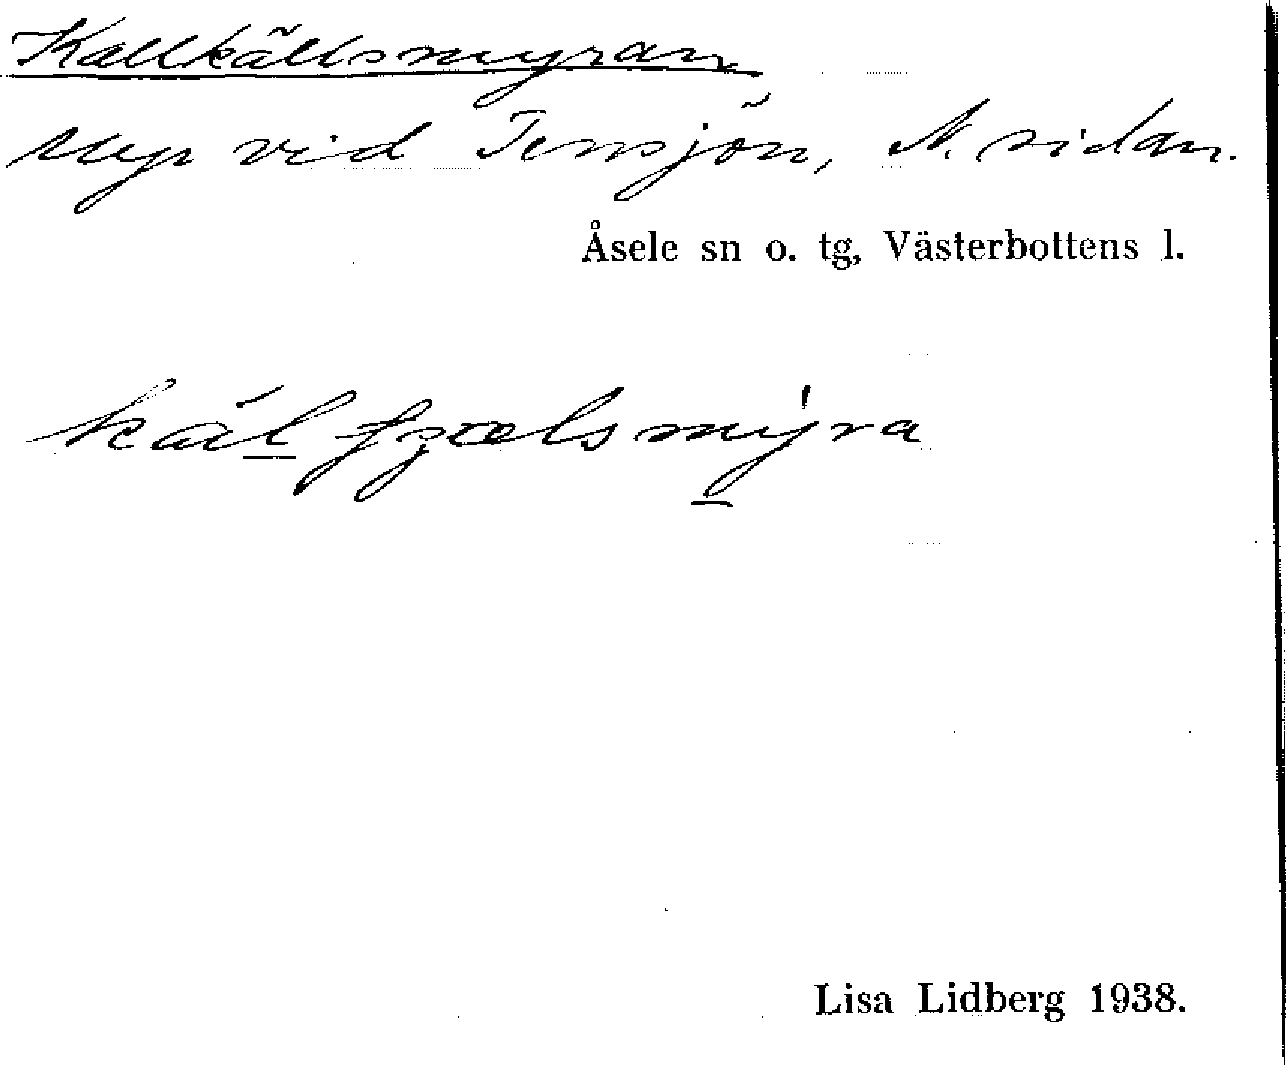 Kallkällsmyran
Myr vid Tensjön, N. sidan.
Åsele sn o. tg, Västerbottens l.
kálfʒælsmy̍ra
Lisa Lidberg 1938.